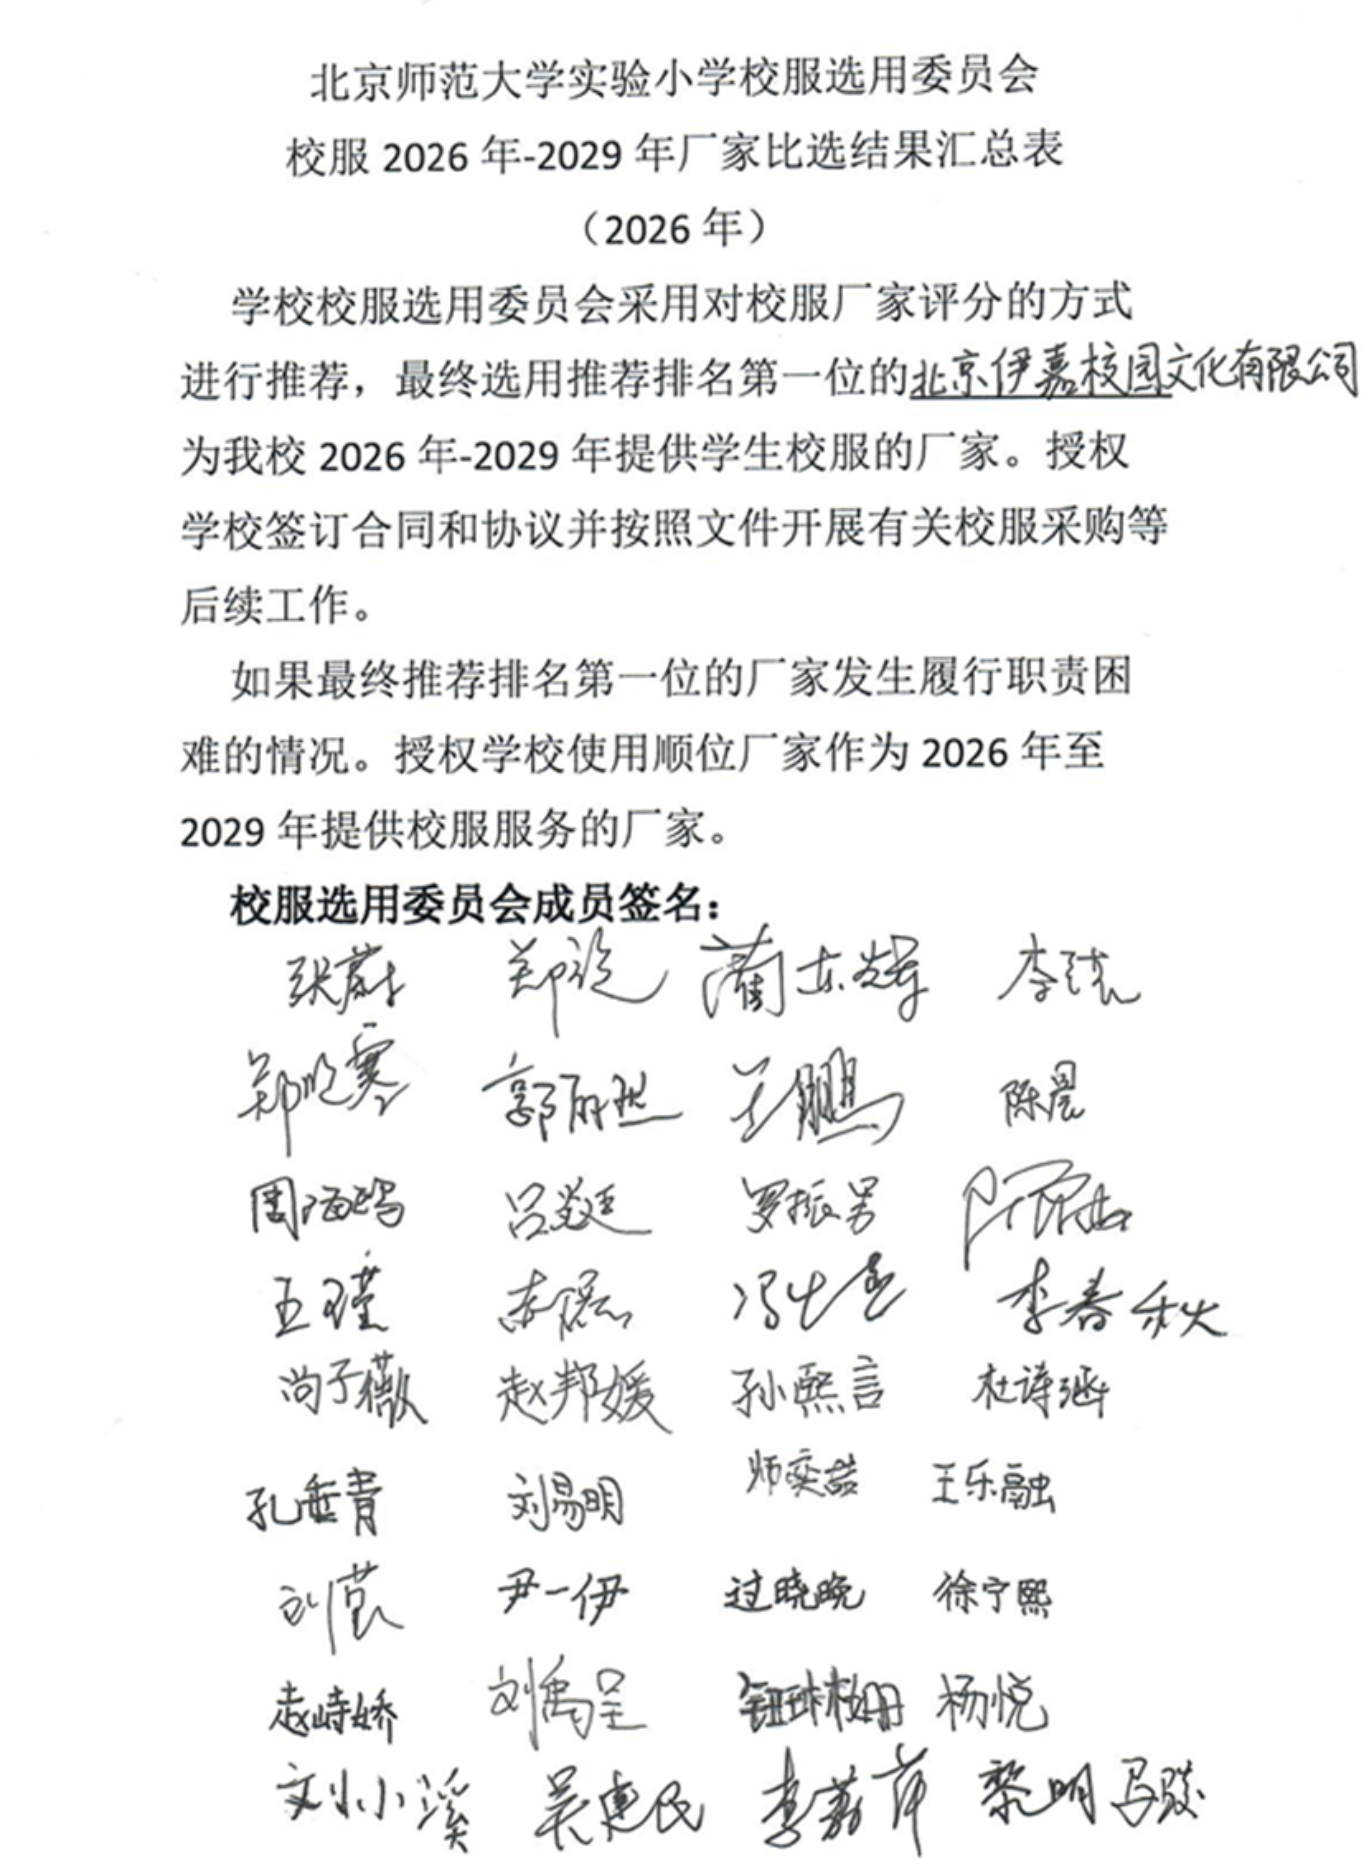 北京师范大学实验小学校服选用委员会
校服 2026 年-2029 年厂家比选结果汇总表
（2026 年）
学校校服选用委员会采用对校服厂家评分的方式
进行推荐，最终选用推荐排名第一位的北京伊嘉校园文化有限公司
为我校 2026 年-2029 年提供学生校服的厂家。授权
学校签订合同和协议并按照文件开展有关校服采购等
后续工作。
如果最终推荐排名第一位的厂家发生履行职责困
难的情况。授权学校使用顺位厂家作为 2026 年至
2029 年提供校服服务的厂家。
校服选用委员会成员签名：
张蔚 蔺东辉
王鹏 陈晨
罗振男
王瑾 李春秋
尚子薇 赵邦媛 孙熙言 杜诗涵
孔垂青 刘易明 师奕喆 王乐融
尹一伊 过晓晚 徐宁熙
刘禹呈 杨悦
刘小溪 吴惠民 黎明 马骏